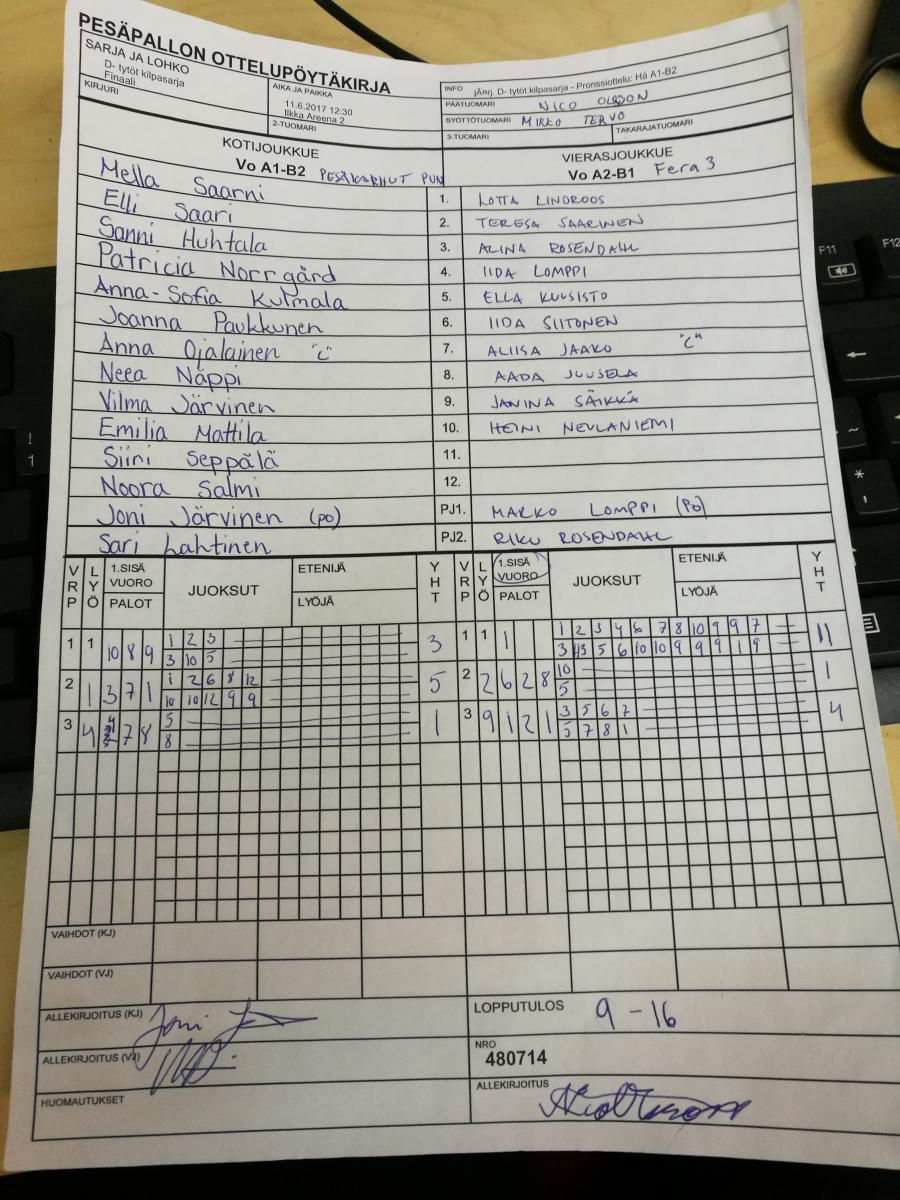 PESÄPALLON OTTELUPÖYTÄKIRJA
SARJA JA LOHKO
D- tytöt kilpasarja
Finaali
KIRJURI
AIKA JA PAIKKA
11.6.2017 12:30
Ilkka Areena 2
2-TUOMARI
INFO jÄerj. D- tytöt kilpasarja - Pronssiottelu: Hä A1-B2
PÄÄTUOMARI NICO OLSSON
SYÖTTÖTUOMARI MIRKO TERVO
3-TUOMARI TAKARAJATUOMARI
KOTIJOUKKUE
Vo A1-B2 PESÄKARHUT PUN
VIERASJOUKKUE
Vo A2-B1 Fera 3
Mella Saarni 1. LOTTA LINDROOS
Elli Saari 2. TERESA SAARINEN
Sanni Huhtala 3. ALINA ROSENDAHL
Patricia Norrgård 4. IIDA LOMPPI
Anna-Sofia Kulmala 5. ELLA KUUSISTO
Joanna Paukkunen 6. IIDA SIITONEN
Anna Ojalainen "C" 7. ALIISA JAAKO "C"
Neea Näppi 8. AADA JUUSELA
Vilma Järvinen 9. JANINA SÄIKKÄ
Emilia Mattila 10. HEINI NEVLANIEMI
Siiri Seppälä 11.
Noora Salmi 12.
Joni Järvinen (po) PJ1. MARKO LOMPPI (PO)
Sari Lahtinen PJ2. RIKU ROSENDAHL
VRP LYÖ 1.SISÄ VUORO PALOT JUOKSUT ETENIJÄ LYÖJÄ YHT VRP LYÖ 1.SISÄ VUORO PALOT JUOKSUT ETENIJÄ LYÖJÄ YHT
1 1 10 8 9 1 2 3 3 1 1 1 1 2 3 4 6 7 8 10 9 9 7 11
3 10 5 3 5 6 10 10 9 9 9 1 9
2 1 3 7 1 1 2 6 8 12 5 2 2 6 2 8 10 1
10 10 12 9 9 5
3 4 7 8 5 1 3 9 1 2 1 3 5 6 7 4
8 5 7 8 1
VAIHDOT (KJ)
VAIHDOT (VJ)
ALLEKIRJOITUS (KJ) Joni
LOPPUTULOS 9 - 16
ALLEKIRJOITUS (VJ)
NRO
480714
HUOMAUTUKSET
ALLEKIRJOITUS